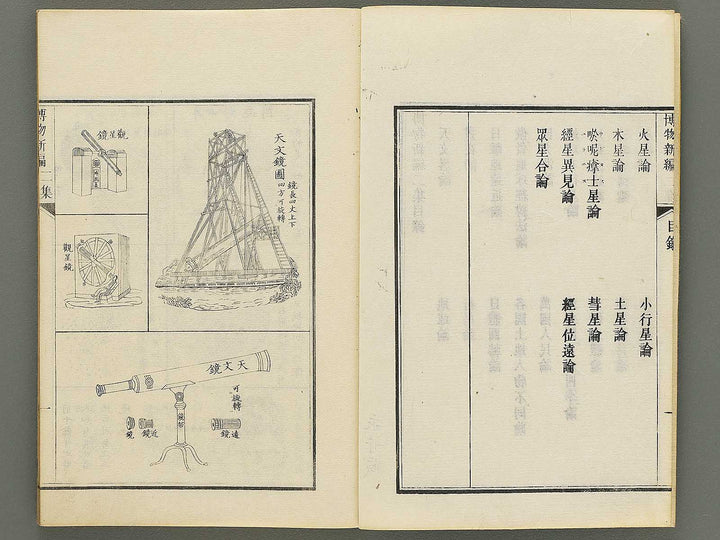 博物新編
目録
火星論
小行星論
木星論
土星論
嘫呢療士星論
彗星論
經星異見論
經星位遠論
眾星合論
天文鏡圖
鏡長四丈上下
四方可旋轉
觀星鏡
觀星鏡
博物新編二集
天文鏡
可旋轉
遠鏡
近鏡
鏡